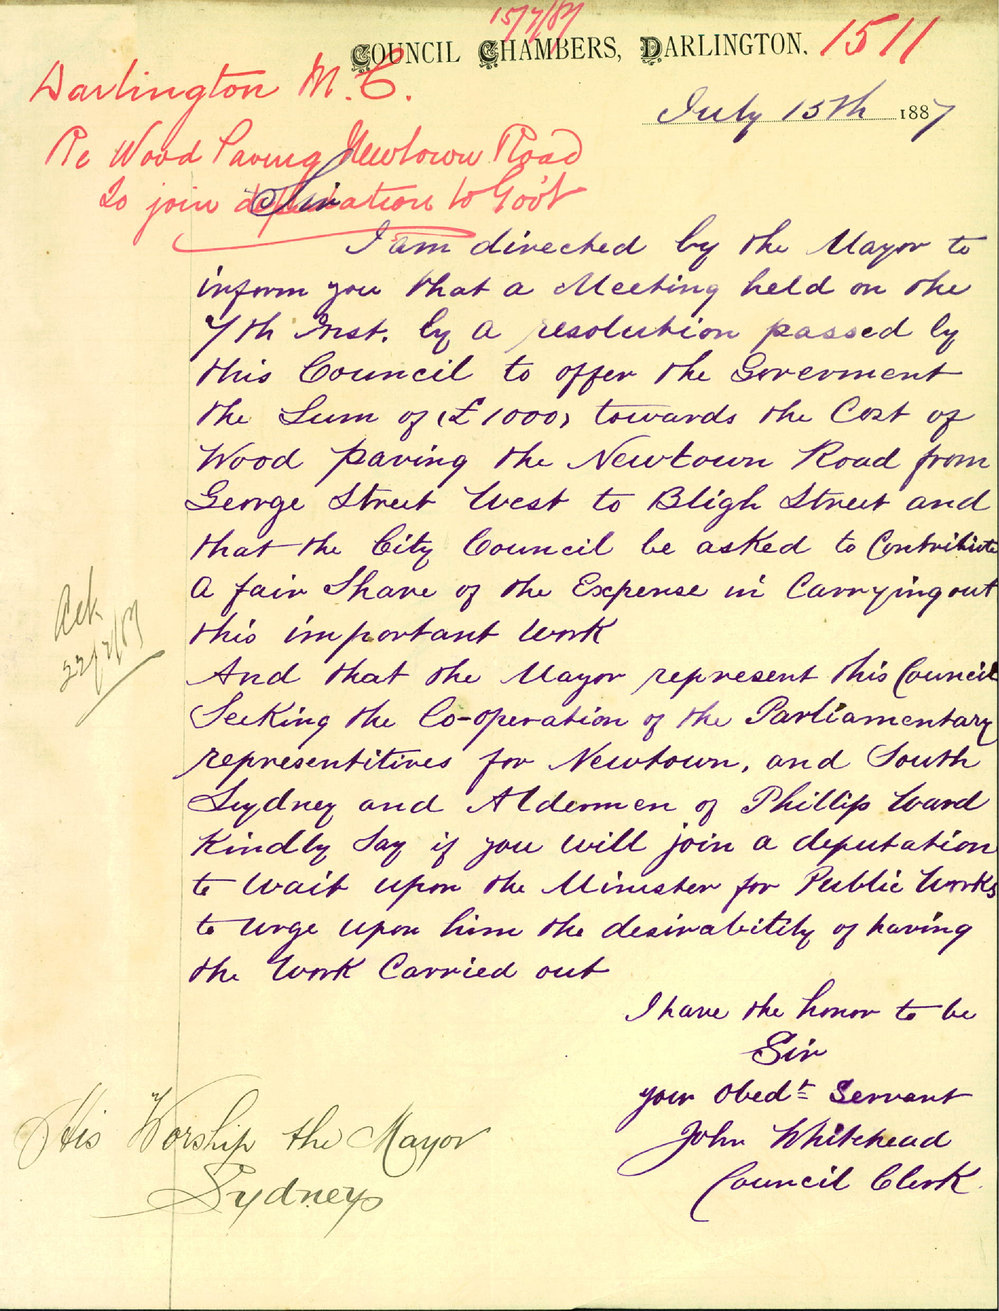 15/7/87
COUNCIL CHAMBERS, DARLINGTON.
1511
Darlington M.C.
July 15th 1887
Re Wood Paving Newtown Road
To join deputation to Gov't
Sir
I am directed by the Mayor to
inform you that a Meeting held on the
7th Inst. by a resolution passed by
this Council to offer the Goverment
the Sum of (£1000) towards the Cost of
Wood paving the Newtown Road from
George Street West to Bligh Street and
that the City Council be asked to Contribute
a fair Share of the Expense in Carrying out
this important Work
And that the Mayor represent this Council
Seeking the Co-operation of the Parliamentary
representitives for Newtown, and South
Sydney and Aldermen of Phillip Ward
Kindly Say if you will join a deputation
to Wait upon the Minister for Public Works
to Urge upon him the desirability of having
the Work Carried out
I have the honor to be
Sir
your Obedt Servant
John Whitehead
Council Clerk
Ack
22/7/87
His Worship the Mayor
Sydney